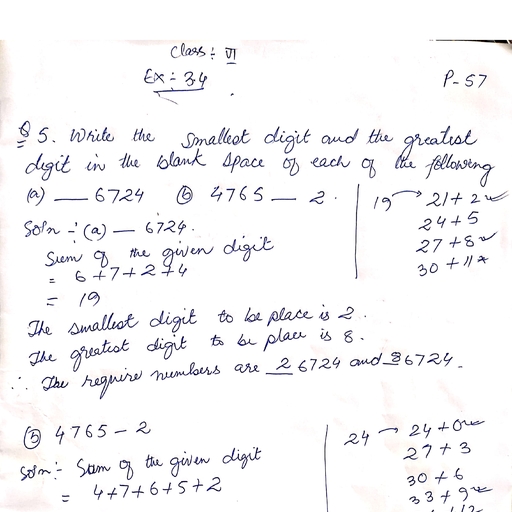 Class:- VI
Ex:- 3.4
P-57
Q 5. Write the smallest digit and the greatest
digit in the blank space of each of the following
(a) __ 6724 (b) 4765 __ 2.
Soln:- (a) — 6724.
Sum of the given digit
= 6+7+2+4
= 19
19 → 21+2
24+5
27+8
30+11×
The smallest digit to be place is 2.
The greatest digit to be place is 8.
∴ The require numbers are 26724 and 86724.
(b) 4765 – 2
Soln:- Sum of the given digit
= 4+7+6+5+2
24 → 24+0
27+3
30+6
33+9